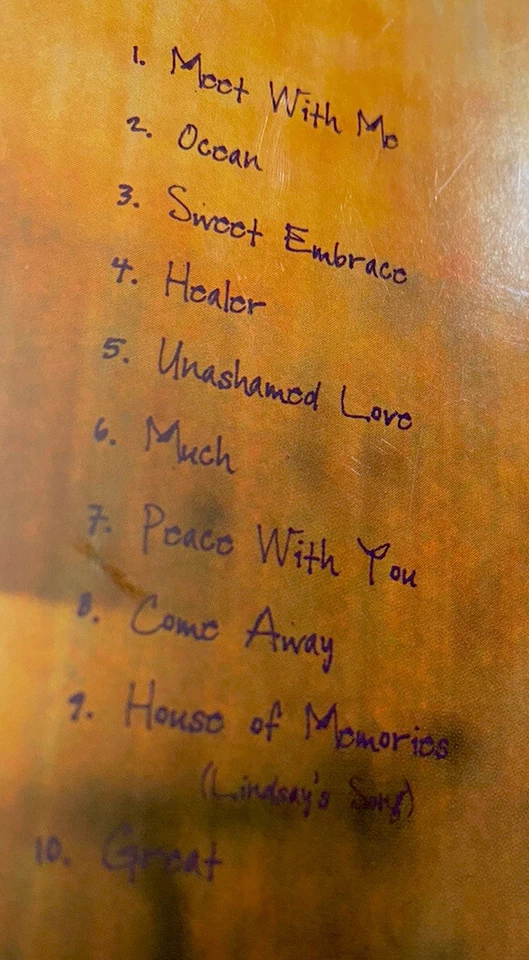 1. Meet With Me
2. Ocean
3. Sweet Embrace
4. Healer
5. Unashamed Love
6. Much
7. Peace With You
8. Come Away
9. House of Memories
(Lindsay's Song)
10. Great